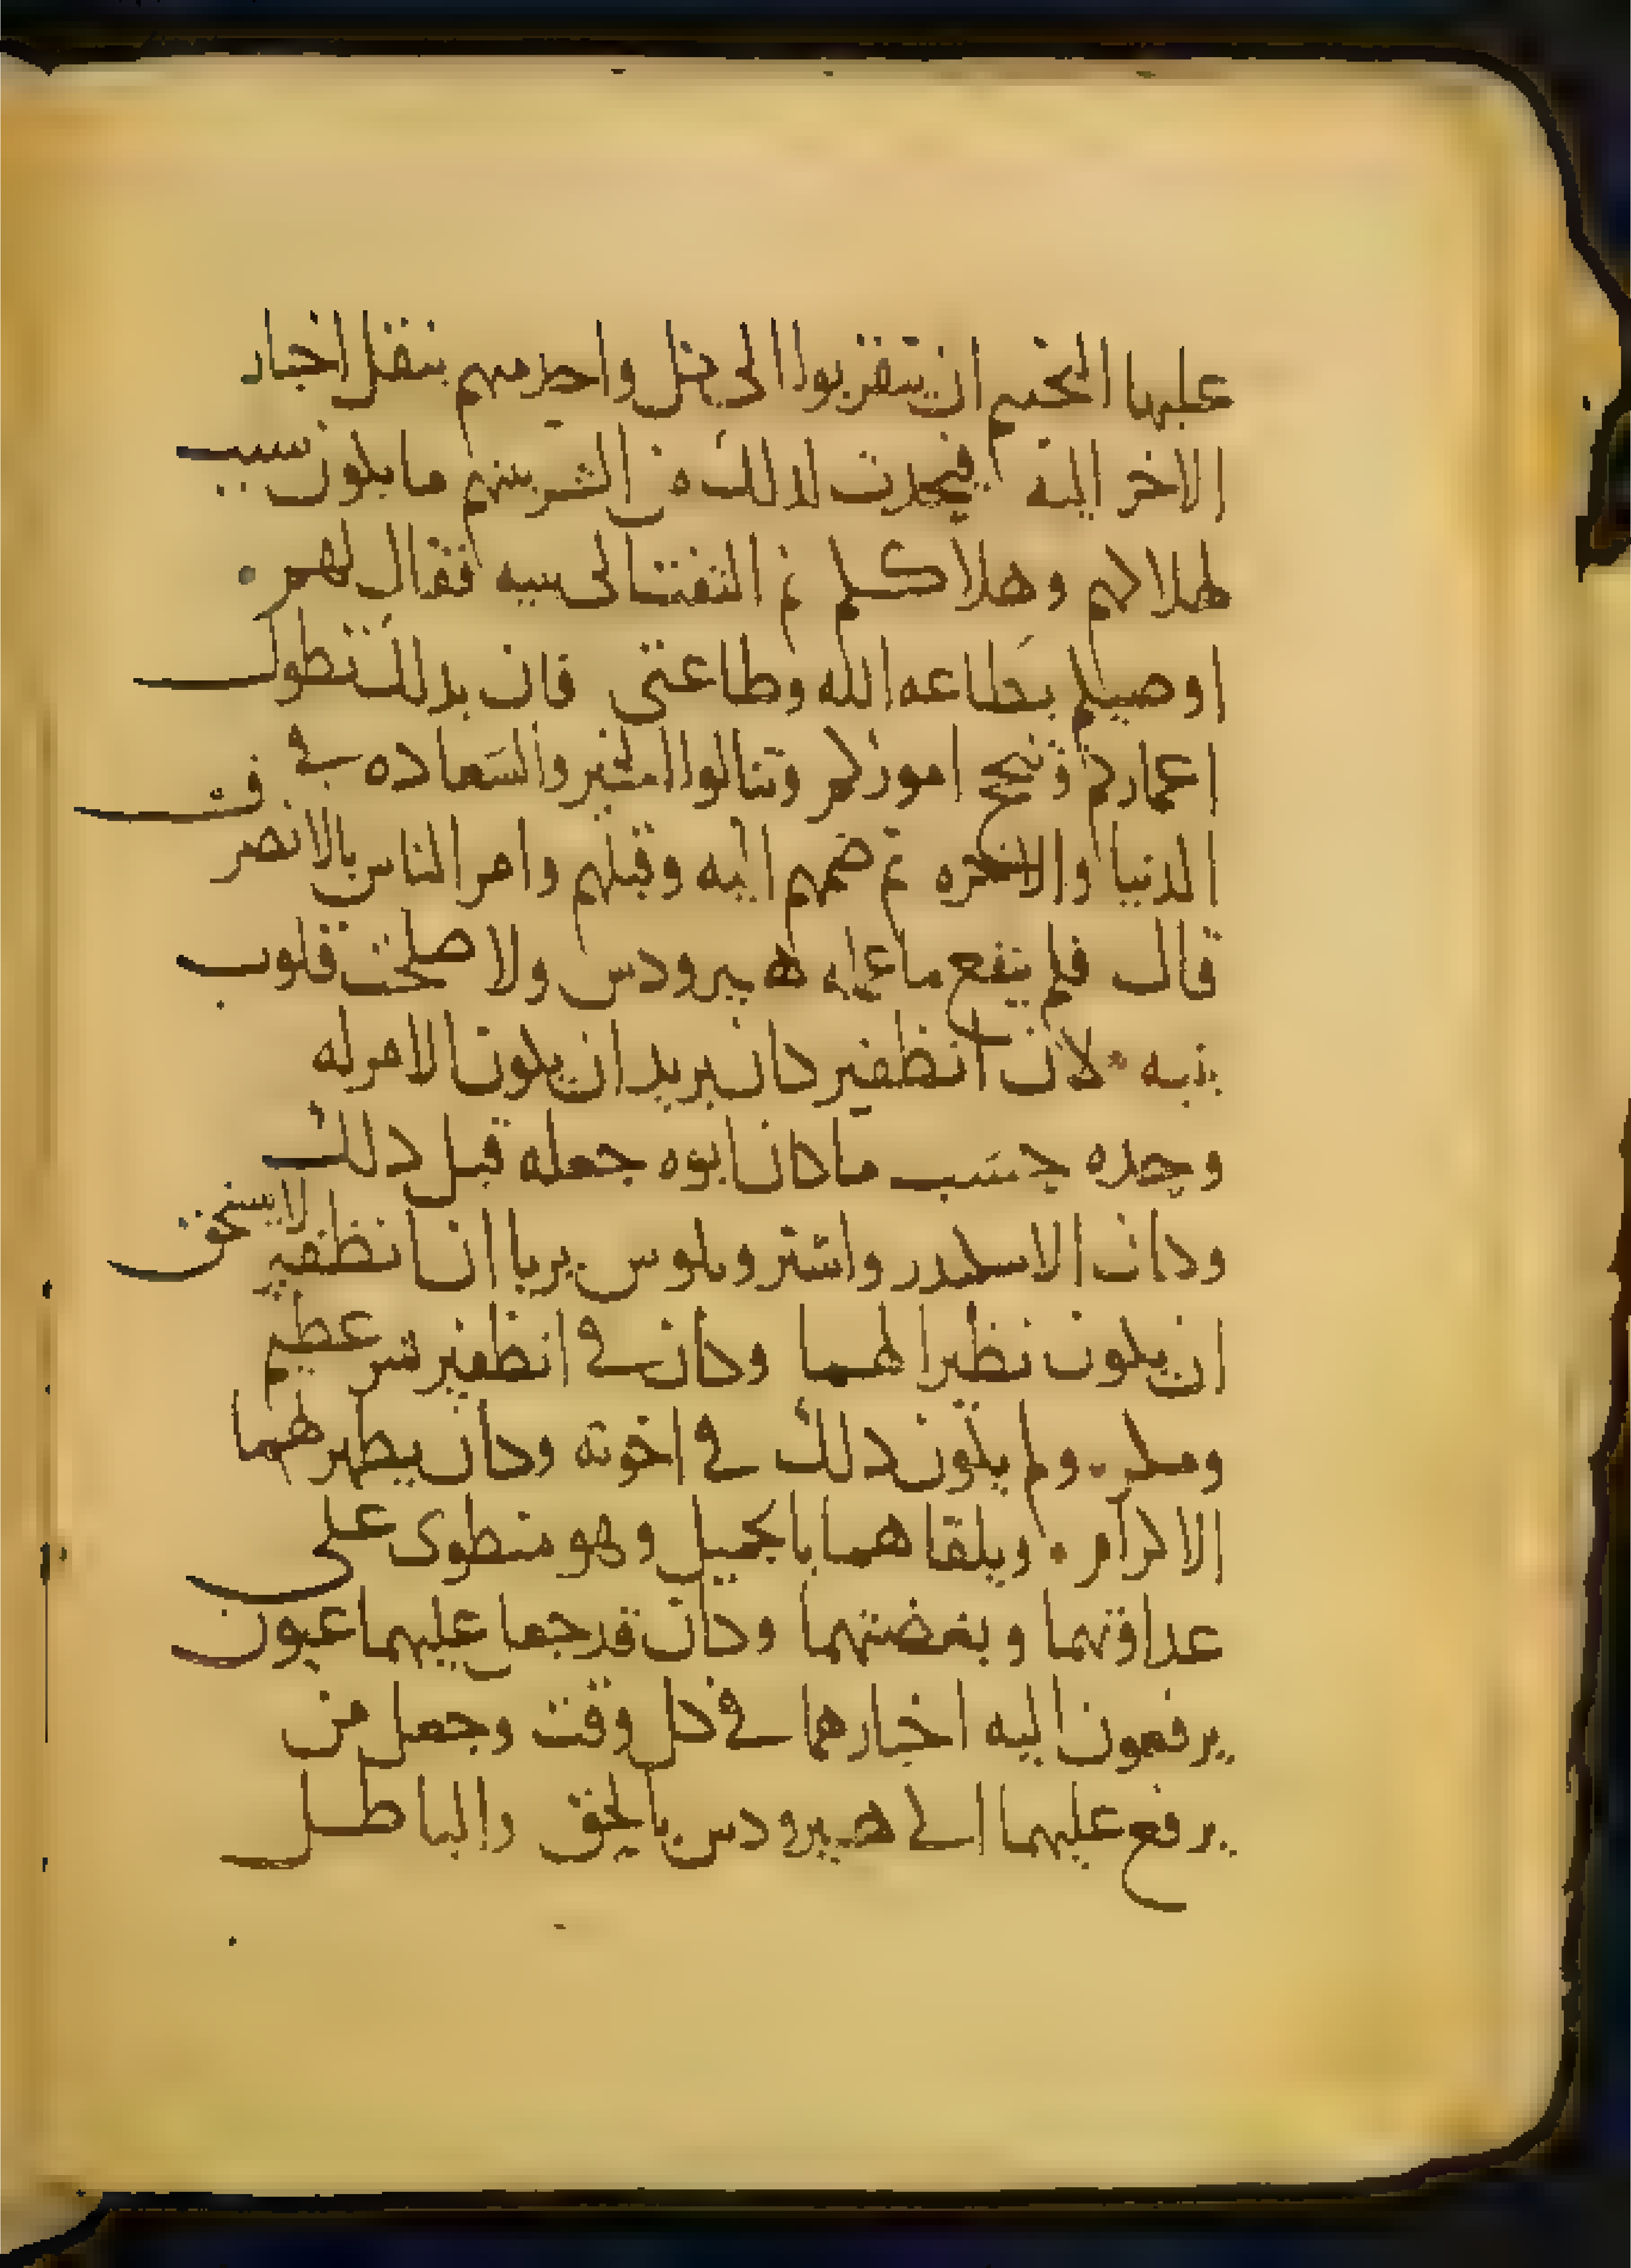 عليها التخيم ان يتقربوا الى كل واحد منهم بنقل اخبار
الاخر اليه فيحدث لدلك من الشر بينهم ما يكون سبب
لهلاكهم وهلاككم ثم التفت الى بنيه فقال لهم
اوصيكم بطاعه الله وطاعتى فان بدلك تطول
اعماركم وتنجح اموركم وتنالوا الخير والسعاده في
الدنيا والاخره ثم ضمهم اليه وقبلهم وامر الناس بالانصراف
قال فلم ينفع ما عمله هيرودس ولا صلحت قلوب
بنيه لان انطفير كان يريد ان يكون الامر له
وحده حسب ما كان ابوه جعله قبل دلك
وكان الاسكندر وارستروبلوس يريا ان انطفير لا يستحق
ان يكون نظيرا لهما وكان في انطفير شر عظيم
ومكر ولم يكون دلك في اخوته وكان يظهر لهما
الاكرام ويلقاهما بالجميل وهو منطوى على
عداوتهما وبغضتهما وكان قد جعل عليهما عيون
يرفعون اليه اخبارهما في كل وقت وجعل من
يرفع عليهما الى هيرودس بالحق والباطل